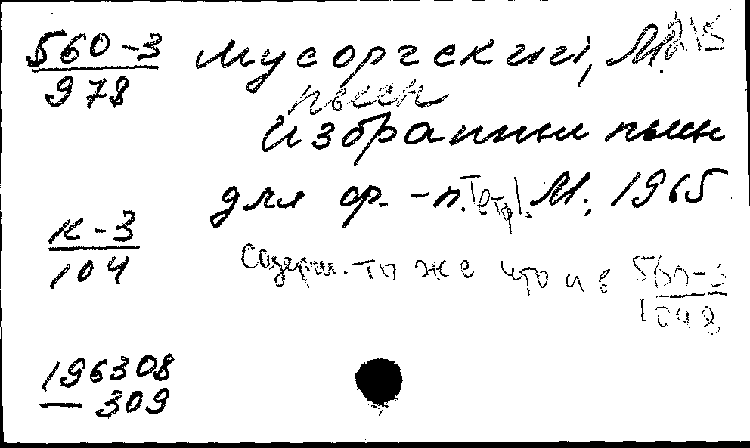 560-3
978
Мусоргский, М. 215
пьесы
Избранные пьесы
для ф.-п. Тетр. 1. М., 1965
К-3
104
Содерж. то же что и в 560-3
1048
196308
— 309